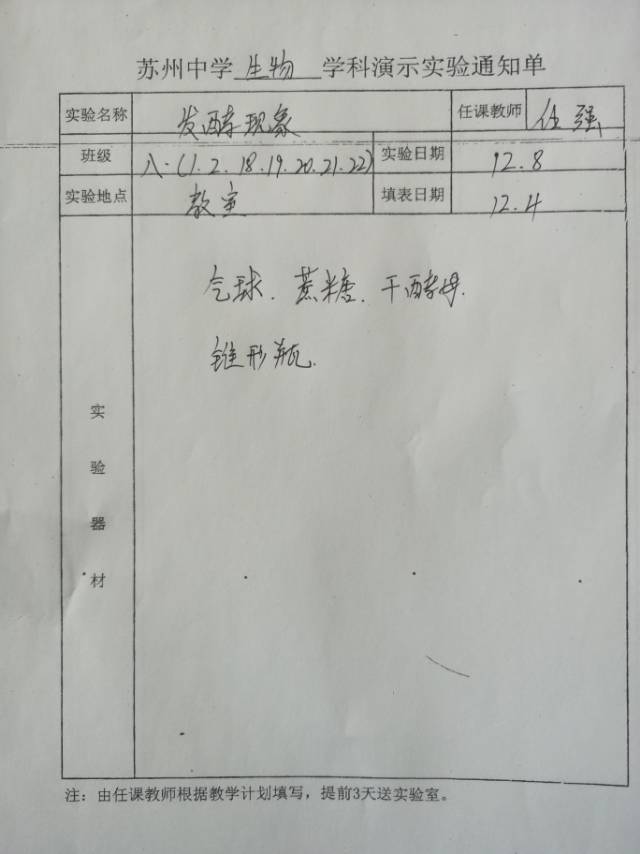 苏州中学 生物 学科演示实验通知单
实验名称 发酵现象 任课教师 任强
班级 八.(1.2.18.19.20.21.22) 实验日期 12.8
实验地点 教室 填表日期 12.4
气球.蔗糖.干酵母.
锥形瓶.
实验器材
注：由任课教师根据教学计划填写，提前3天送实验室。